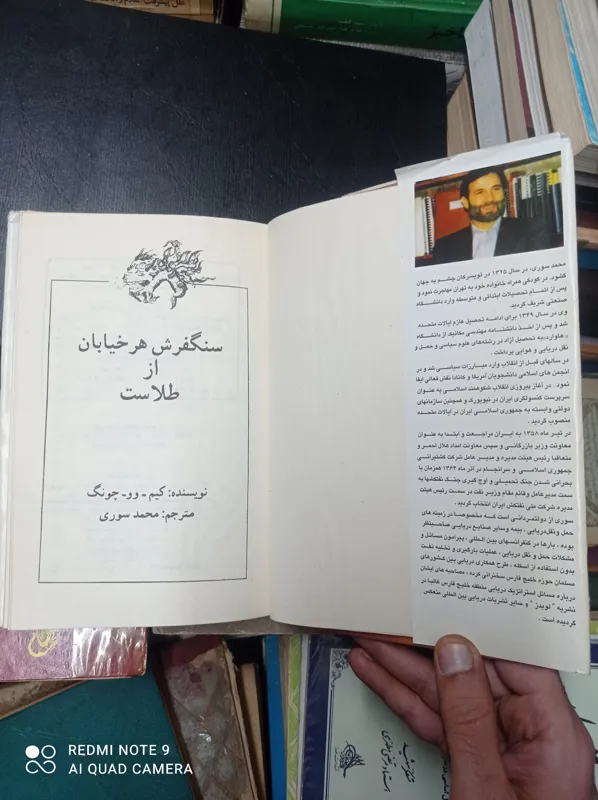 سنگفرش هر خیابان
از
طلاست
نویسنده: کیم ـ وو ـ چونگ
مترجم: محمد سوری
محمد سوری، در سال ۱۳۲۵ در تویسرکان چشم به جهان
گشود. در کودکی همراه خانواده خود به تهران مهاجرت نمود و
پس از اتمام تحصیلات ابتدائی و متوسطه وارد دانشگاه
صنعتی شریف گردید.
وی در سال ۱۳۴۹ برای ادامه تحصیل عازم ایالات متحده
شد و پس از اخذ دانشنامه مهندسی مکانیک از دانشگاه
«هاوارد» به تحصیل آزاد در رشته‌های علوم سیاسی و حمل و
نقل دریایی و هوایی پرداخت.
در سالهای قبل از انقلاب وارد مبارزات سیاسی شد و در
انجمن های اسلامی دانشجویان آمریکا و کانادا نقش فعالی ایفا
نمود. در آغاز پیروزی انقلاب شکوهمند اسلامی به عنوان
سرپرست کنسولگری ایران در نیویورک و همچنین سازمانهای
دولتی وابسته به جمهوری اسلامی ایران در ایالات متحده
منصوب گردید.
در تیر ماه ۱۳۵۸ به ایران مراجعت و ابتدا به عنوان
معاونت وزیر بازرگانی و سپس معاونت امداد هلال احمر و
متعاقبا رئیس هیئت مدیره و مدیر عامل شرکت کشتیرانی
جمهوری اسلامی و سرانجام در آذر ماه ۱۳۶۴ همزمان با
بحرانی شدن جنگ تحمیلی و اوج گیری جنگ نفتکشها به
سمت مدیرعامل و قائم مقام وزیر نفت در سمت رئیس هیئت
مدیره شرکت ملی نفتکش ایران انتخاب گردید.
سوری از دولتمردانی است که مخصوصا در زمینه های
حمل و نقل دریایی، بیمه و سایر صنایع دریایی صاحبنظر
بوده، بارها در کنفرانسهای بین المللی، پیرامون مسائل و
مشکلات حمل و نقل دریایی، عملیات بارگیری و تخلیه نفت
بدون استفاده از اسکله، طرح همکاری دریایی بین کشورهای
مسلمان حوزه خلیج فارس سخنرانی کرده، مصاحبه های ایشان
درباره مسائل استراتژیک دریایی منطقه خلیج فارس غالبا در
نشریه "لویدز" و سایر نشریات دریایی بین المللی منعکس
گردیده است.
REDMI NOTE 9
AI QUAD CAMERA